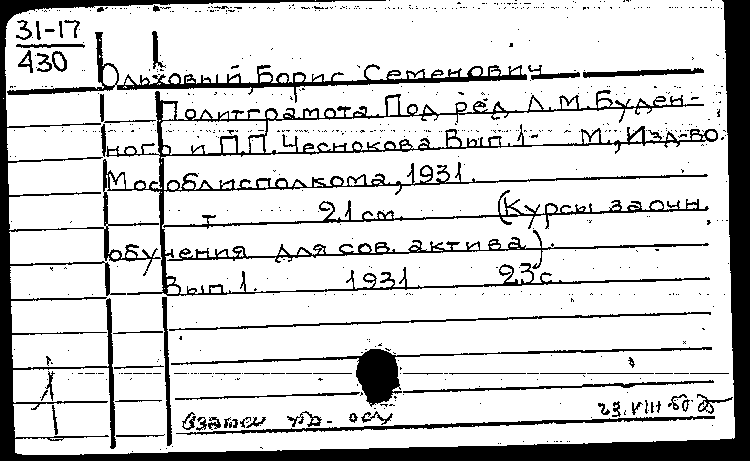 31-17
430
Ольховый, Борис Семенович
Политграмота. Под ред. Л.М. Буден-
ного и П.П. Чеснокова. Вып. 1- М., Изд-во
Мособлисполкома, 1931.
т 21 см. (Курсы заочн.
обучения для сов. актива).
Вып. 1. 1931. 23 с.
1
взамен
23.VIII 60